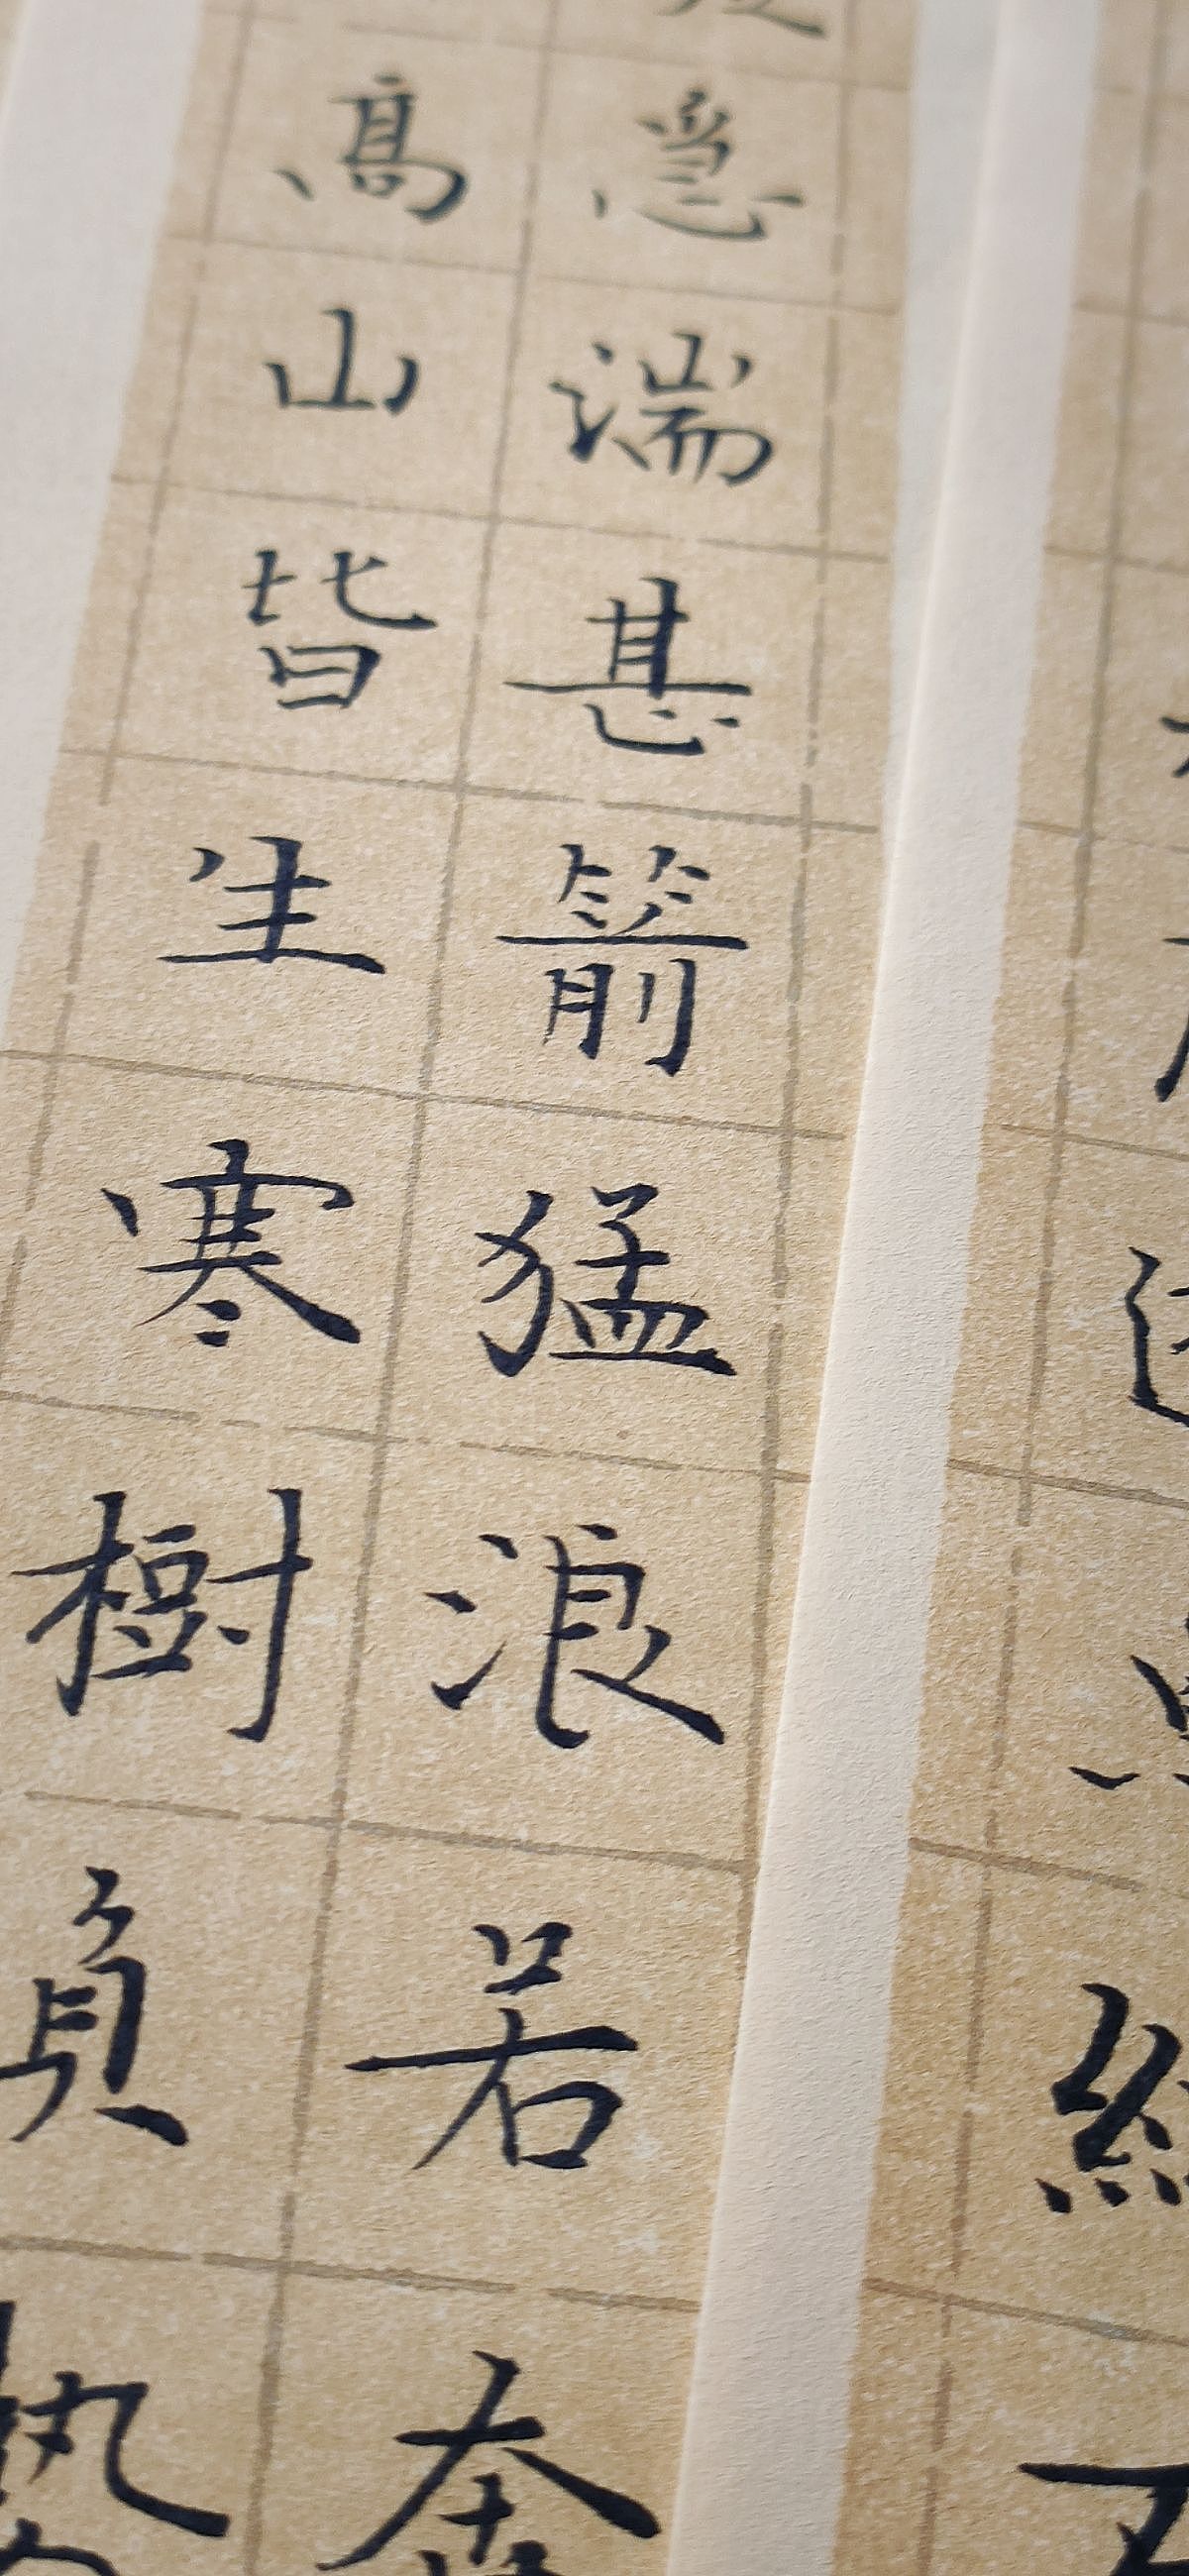 急湍甚箭猛浪若奔
高山皆生寒樹負勢